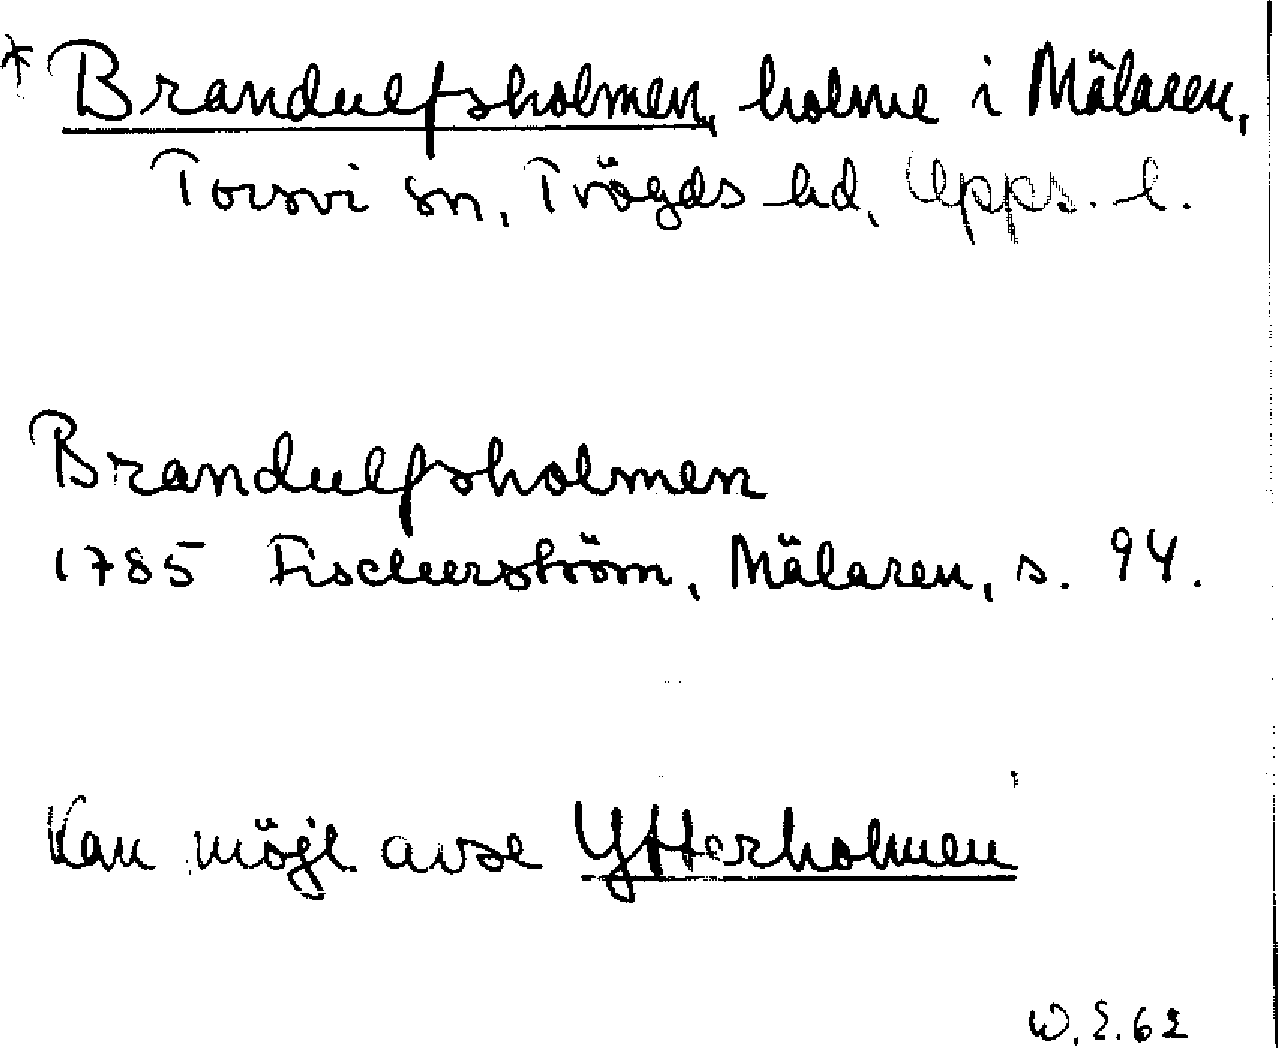 * Brandulfsholmen, holme i Mälaren,
Torsvi sn, Trögds hd, Upps. l.
Brandulfsholmen
1785 Fischerström, Mälaren, s. 94.
Kan möjl. avse Ytterholmen
W.E.62